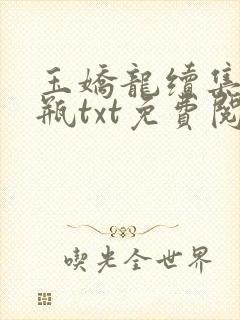 玉嬌龍續集
瓶txt免費閱
喫光全世界